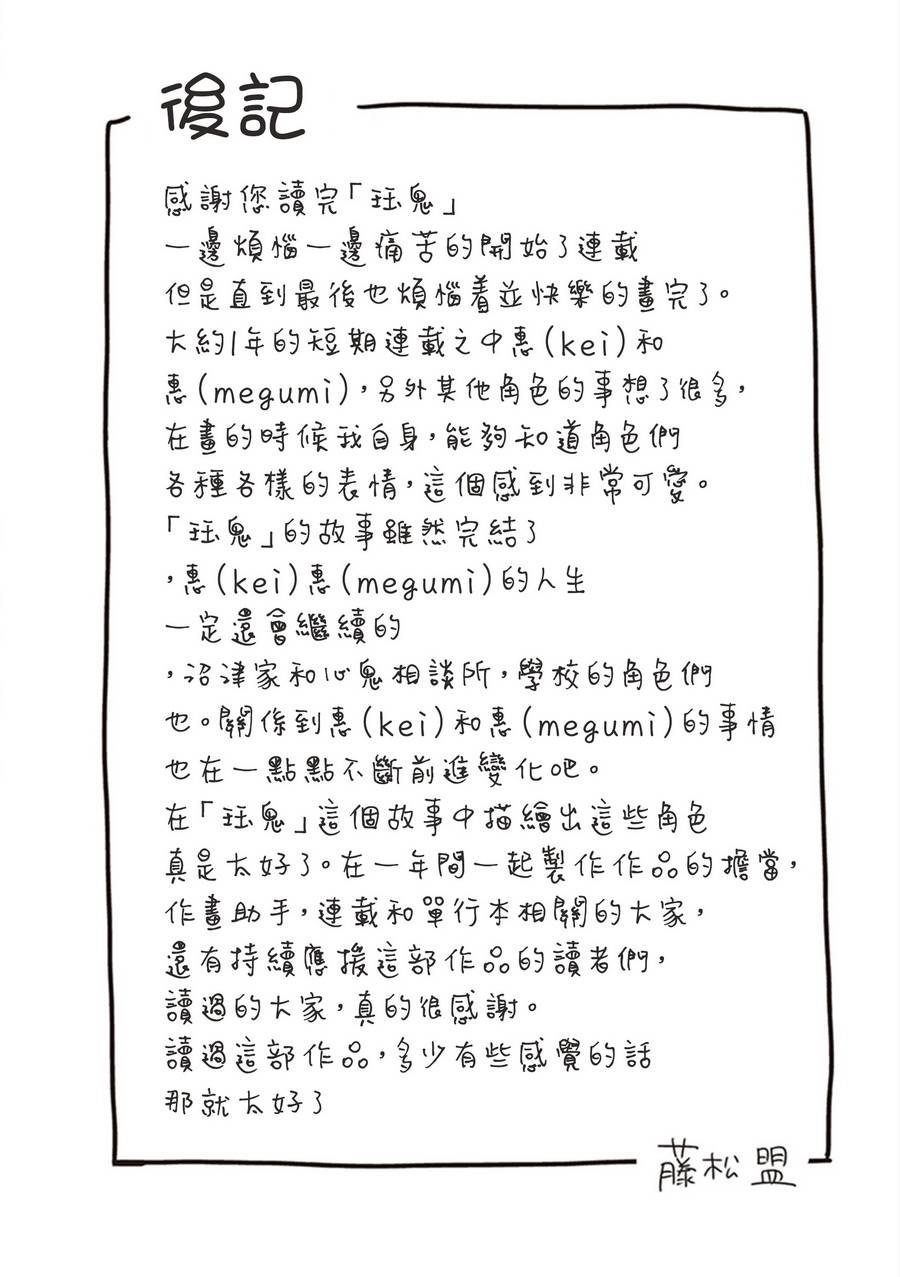 後記
感謝您讀完「珏鬼」
一邊煩惱一邊痛苦的開始了連載
但是直到最後也煩惱着並快樂的畫完了。
大約1年的短期連載之中惠(kei)和
惠(megumi)，另外其他角色的事想了很多，
在畫的時候我自身，能夠知道角色們
各種各樣的表情，這個感到非常可愛。
「珏鬼」的故事雖然完結了
，惠(kei)惠(megumi)的人生
一定還會繼續的
，沼津家和心鬼相談所，學校的角色們
也。關係到惠(kei)和惠(megumi)的事情
也在一點點不斷前進變化吧。
在「珏鬼」這個故事中描繪出這些角色
真是太好了。在一年間一起製作作品的擔當，
作畫助手，連載和單行本相關的大家，
還有持續應援這部作品的讀者們，
讀過的大家，真的很感謝。
讀過這部作品，多少有些感覺的話
那就太好了
藤松盟